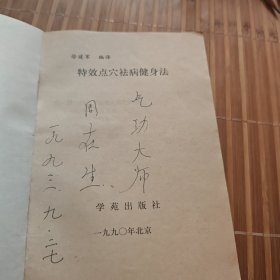 徐建军 编译
特效点穴祛病健身法
气功大师
周在生
一九九三.九.二七
学苑出版社
一九九〇年北京